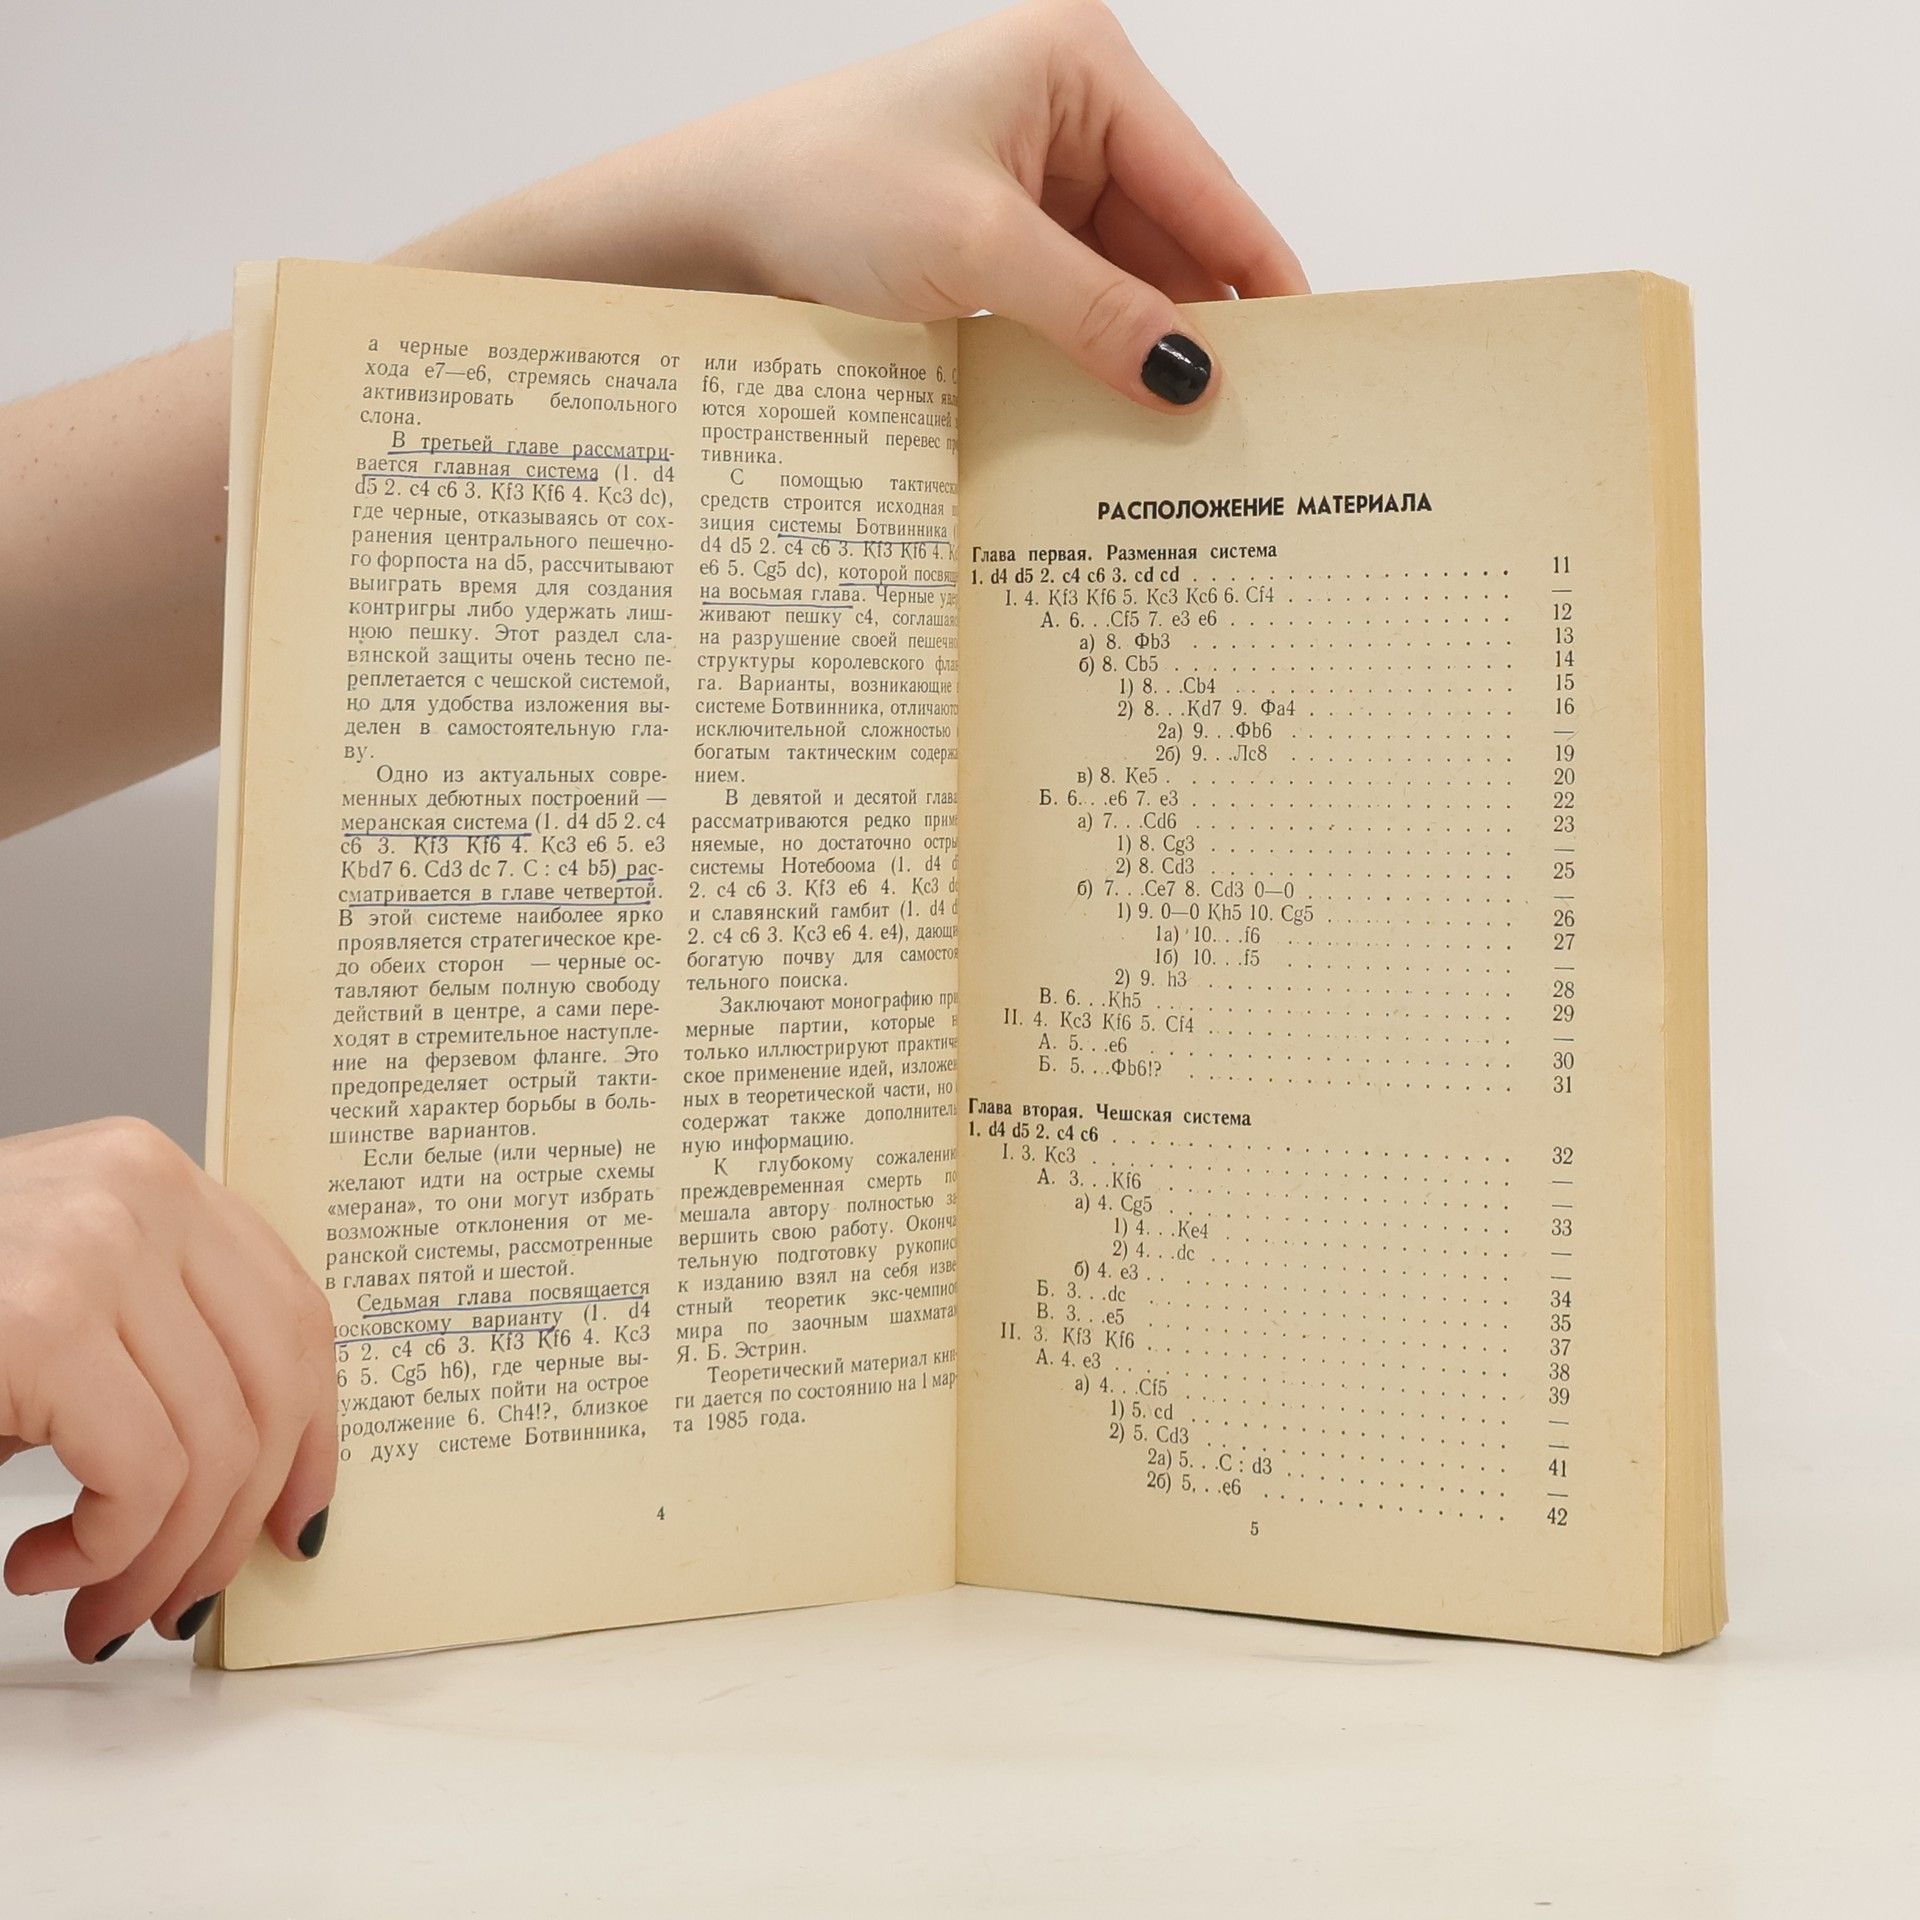 а черные воздерживаются от
хода e7—e6, стремясь сначала
активизировать белопольного
слона.
В третьей главе рассматри-
вается главная система (1. d4
d5 2. c4 c6 3. Kf3 Kf6 4. Kc3 dc),
где черные, отказываясь от сох-
ранения центрального пешечно-
го форпоста на d5, рассчитывают
выиграть время для создания
контригры либо удержать лиш-
нюю пешку. Этот раздел сла-
вянской защиты очень тесно пе-
реплетается с чешской системой,
но для удобства изложения вы-
делен в самостоятельную гла-
ву.
Одно из актуальных совре-
менных дебютных построений —
меранская система (1. d4 d5 2. c4
c6 3. Kf3 Kf6 4. Kc3 e6 5. e3
Kbd7 6. Cd3 dc 7. C : c4 b5) рас-
сматривается в главе четвертой.
В этой системе наиболее ярко
проявляется стратегическое кре-
до обеих сторон — черные ос-
тавляют белым полную свободу
действий в центре, а сами пере-
ходят в стремительное наступле-
ние на ферзевом фланге. Это
предопределяет острый такти-
ческий характер борьбы в боль-
шинстве вариантов.
Если белые (или черные) не
желают идти на острые схемы
«мерана», то они могут избрать
возможные отклонения от ме-
ранской системы, рассмотренные
в главах пятой и шестой.
Седьмая глава посвящается
московскому варианту (1. d4
d5 2. c4 c6 3. Kf3 Kf6 4. Kc3
6 5. Cg5 h6), где черные вы-
уждают белых пойти на острое
родолжение 6. Ch4!?, близкое
о духу системе Ботвинника,
4
или избрать спокойное 6. C
f6, где два слона черных явл
ются хорошей компенсацией
пространственный перевес пр
тивника.
С помощью тактическ
средств строится исходная п
зиция системы Ботвинника (
d4 d5 2. c4 c6 3. Kf3 Kf6 4. K
e6 5. Cg5 dc), которой посвящ
на восьмая глава. Черные уде
живают пешку c4, соглашаяс
на разрушение своей пешечно
структуры королевского флан
га. Варианты, возникающие
системе Ботвинника, отличаютс
исключительной сложностью
богатым тактическим содержа
нием.
В девятой и десятой глава
рассматриваются редко приме
няемые, но достаточно остры
системы Нотебоома (1. d4 d
2. c4 c6 3. Kf3 e6 4. Kc3 dc
и славянский гамбит (1. d4 d
2. c4 c6 3. Kc3 e6 4. e4), дающи
богатую почву для самостоя
тельного поиска.
Заключают монографию при
мерные партии, которые н
только иллюстрируют практиче
ское применение идей, изложен
ных в теоретической части, но
содержат также дополнитель
ную информацию.
К глубокому сожалению
преждевременная смерть по
мешала автору полностью за
вершить свою работу. Оконча
тельную подготовку рукопис
к изданию взял на себя изве
стный теоретик экс-чемпион
мира по заочным шахматам
Я. Б. Эстрин.
Теоретический материал кни-
ги дается по состоянию на 1 мар-
та 1985 года.
РАСПОЛОЖЕНИЕ МАТЕРИАЛА
Глава первая. Разменная система
1. d4 d5 2. c4 c6 3. cd cd . . . 11
I. 4. Kf3 Kf6 5. Kc3 Kc6 6. Cf4 . . . —
А. 6. . .Cf5 7. e3 e6 . . . 12
а) 8. Фb3 . . . 13
б) 8. Cb5 . . . 14
1) 8. . .Cb4 . . . 15
2) 8. . .Kd7 9. Фa4 . . . 16
2а) 9. . .Фb6 . . . —
2б) 9. . .Лc8 . . . 19
в) 8. Ke5 . . . 20
Б. 6. . .e6 7. e3 . . . 22
а) 7. . .Cd6 . . . 23
1) 8. Cg3 . . . —
2) 8. Cd3 . . . 25
б) 7. . .Ce7 8. Cd3 0—0 . . . —
1) 9. 0—0 Kh5 10. Cg5 . . . 26
1а) 10. . .f6 . . . 27
1б) 10. . .f5 . . . —
2) 9. h3 . . . 28
В. 6. . .Kh5 . . . 29
II. 4. Kc3 Kf6 5. Cf4 . . . —
А. 5. . .e6 . . . 30
Б. 5. . .Фb6!? . . . 31
Глава вторая. Чешская система
1. d4 d5 2. c4 c6 . . . 32
I. 3. Kc3 . . . —
А. 3. . .Kf6 . . . —
а) 4. Cg5 . . . 33
1) 4. . .Ke4 . . . —
2) 4. . .dc . . . —
б) 4. e3 . . . 34
Б. 3. . .dc . . . 35
В. 3. . .e5 . . . 37
II. 3. Kf3 Kf6 . . . 38
А. 4. e3 . . . 39
а) 4. . .Cf5 . . . —
1) 5. cd . . . —
2) 5. Cd3 . . . 41
2а) 5. . .C : d3 . . . —
2б) 5. . .e6 . . . 42
5